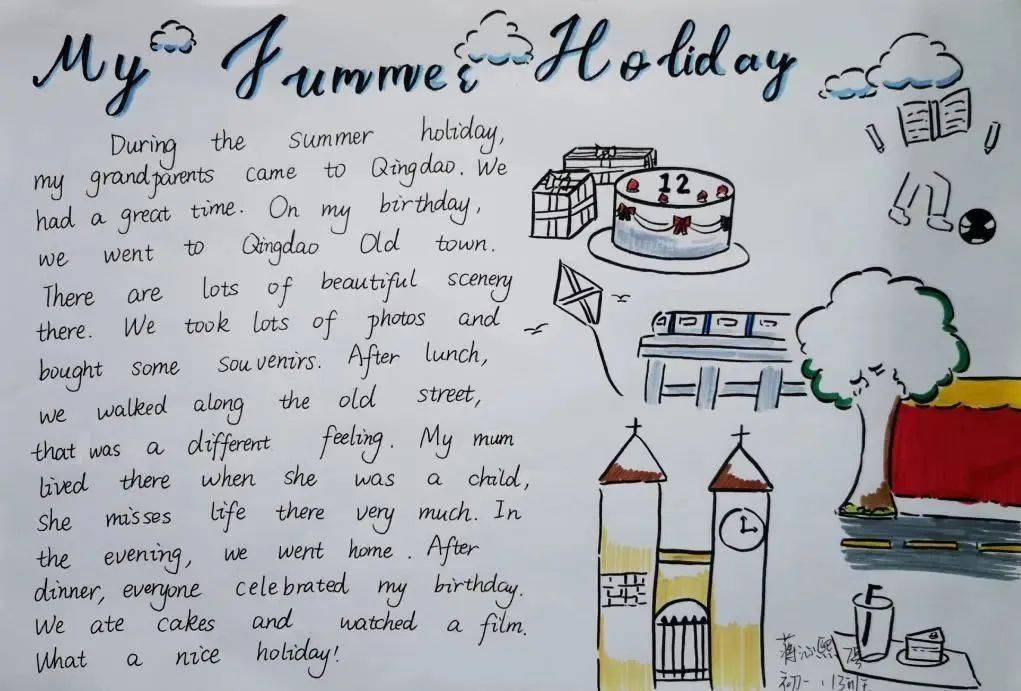 My Summer Holiday
During the summer holiday,
my grandparents came to Qingdao. We
had a great time. On my birthday,
we went to Qingdao Old town.
There are lots of beautiful scenery
there. We took lots of photos and
bought some souvenirs. After lunch,
we walked along the old street,
that was a different feeling. My mum
lived there when she was a child,
She misses life there very much. In
the evening, we went home. After
dinner, everyone celebrated my birthday.
We ate cakes and watched a film.
What a nice holiday!
12
初一